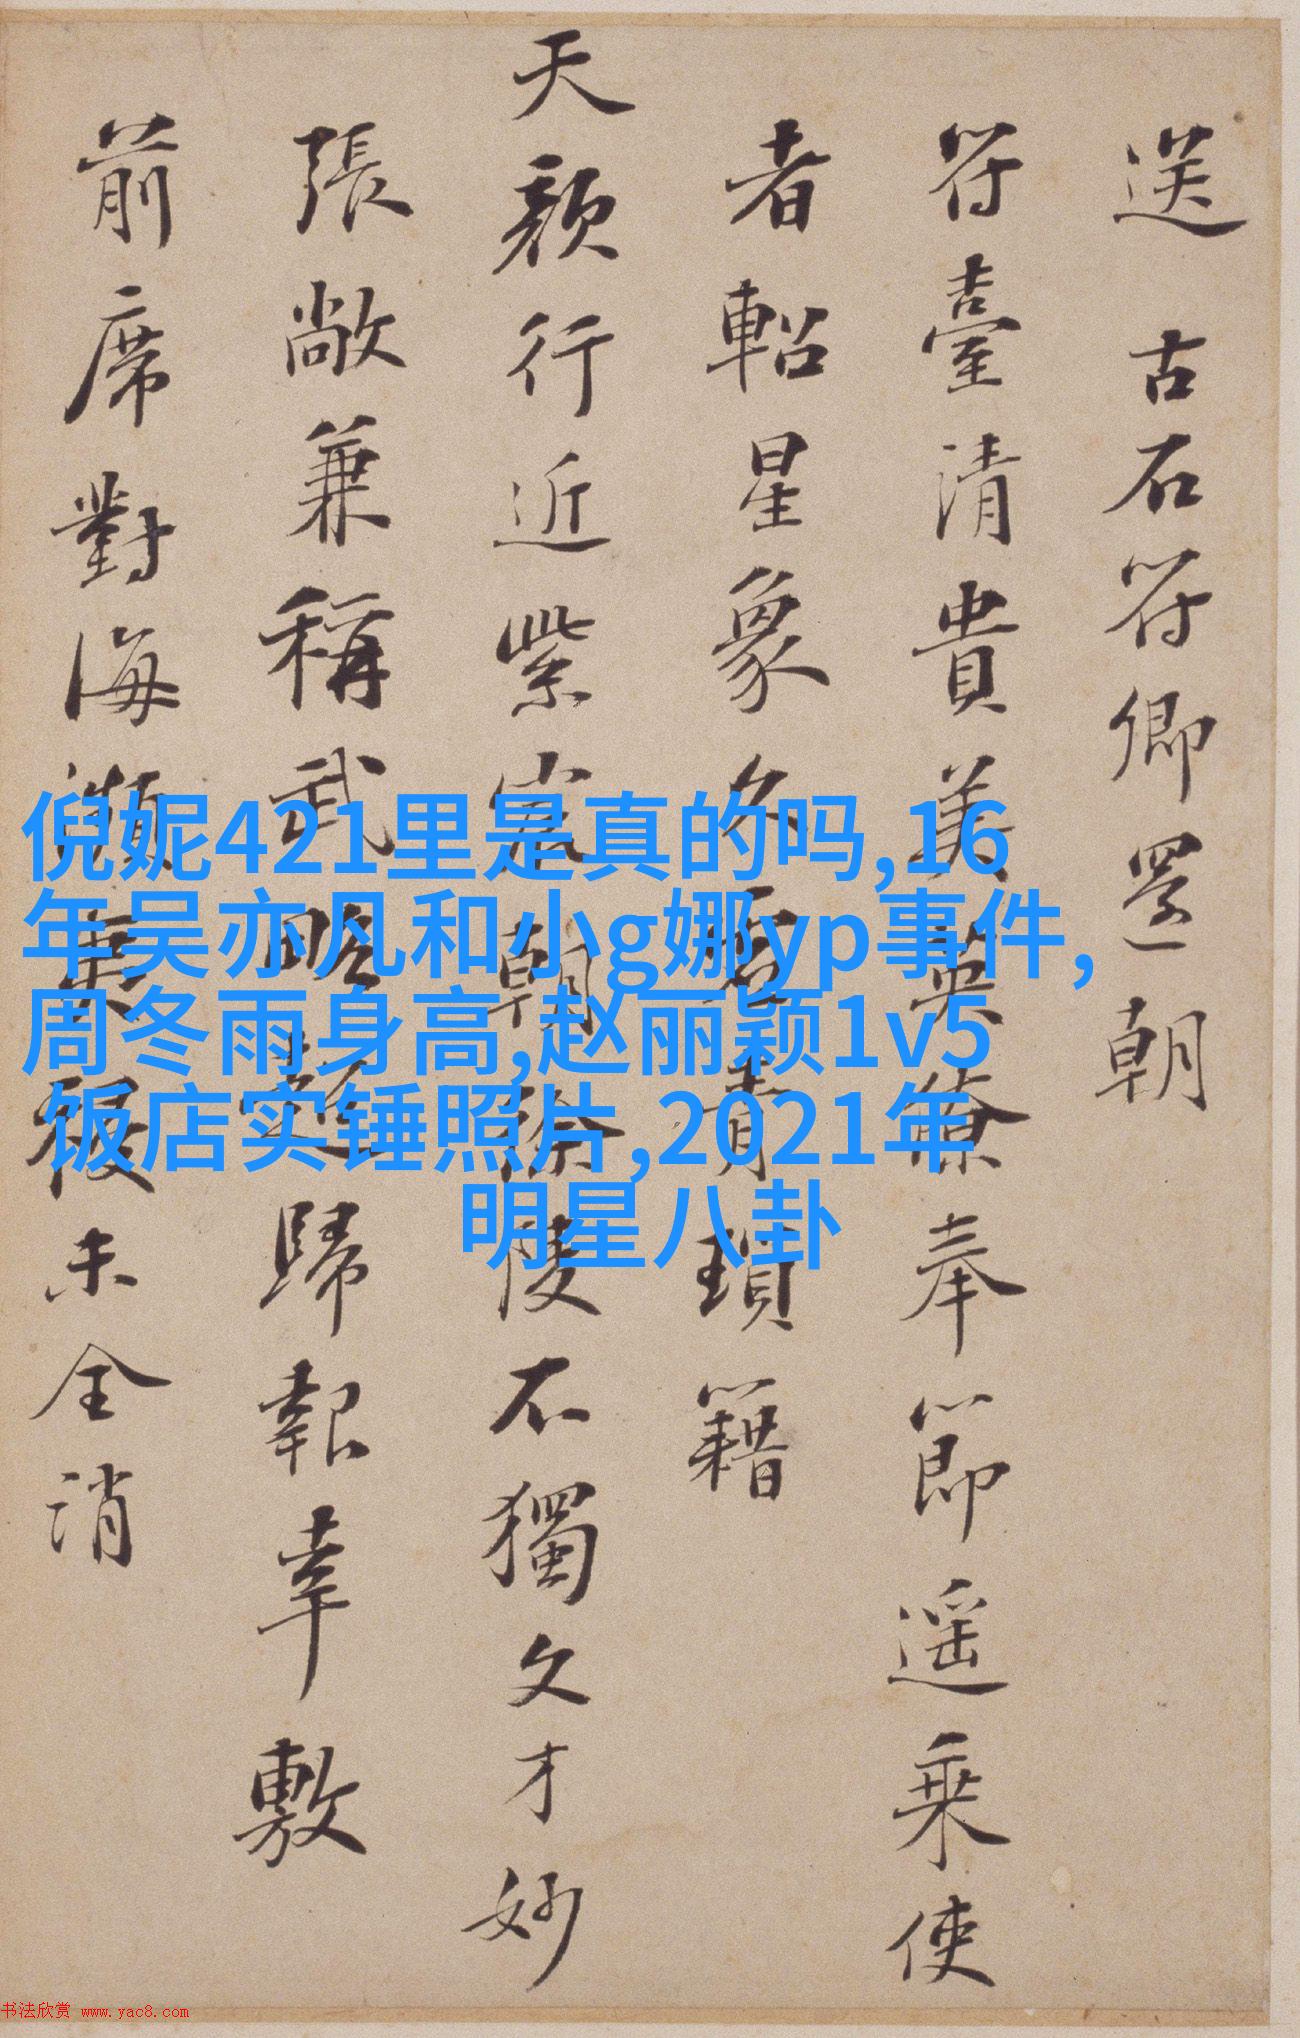 送 古石符卿還朝
符臺清貴美英僚奉節遥乘使
者軺星象久青瑣籍
天顏行近紫宸朝徐陵不獨文才妙
張敞兼稱武略超歸報幸敷
前席對海瀕未全消
倪妮421里是真的吗,16
年吴亦凡和小g娜yp事件,
周冬雨身高,赵丽颖1v5
饭店实锤照片,2021年
明星八卦
书法欣赏 www.yac8.com